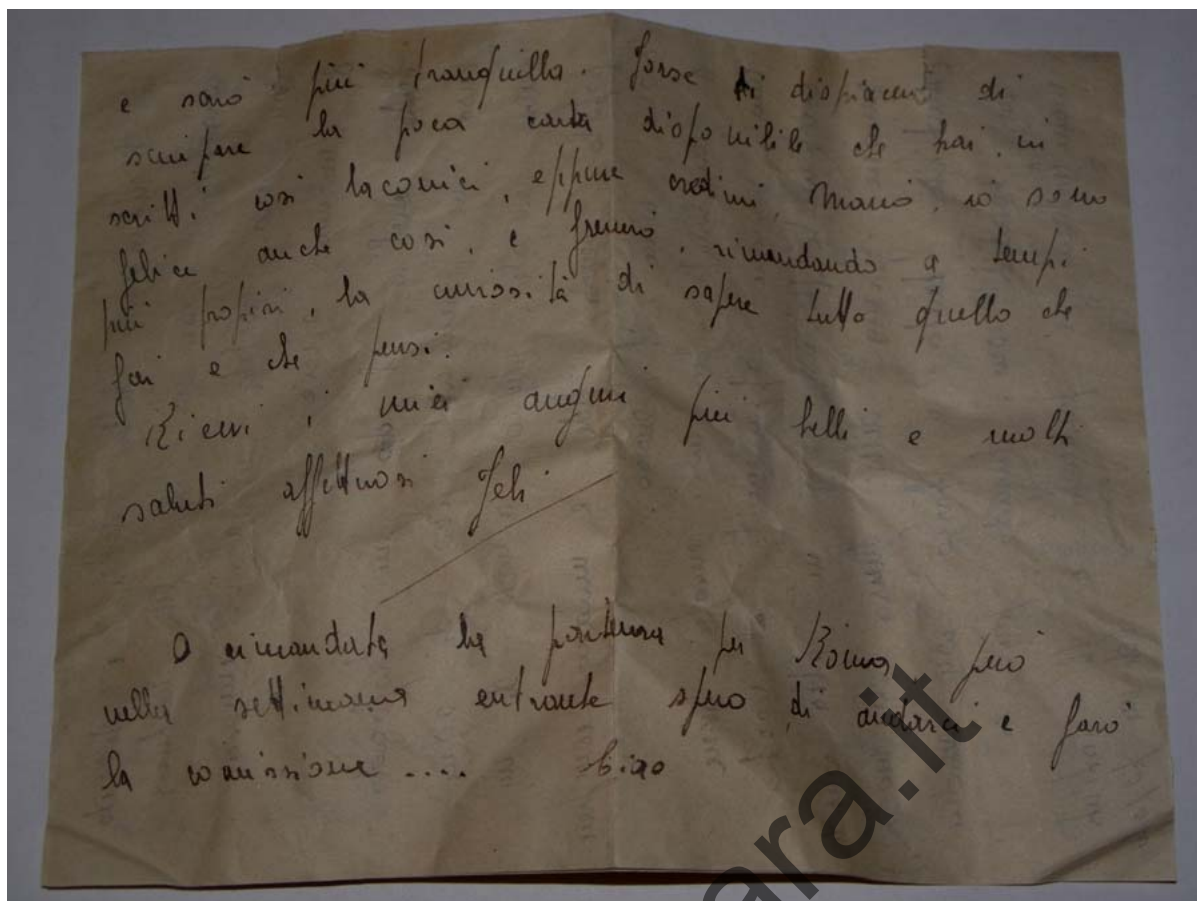 e sarò più tranquilla. Forse ti dispiacerà di
sciupare la poca carta disponibile che hai, in
scritti così laconici, eppure credimi, Mario, io sono
felice anche così, e frenerò, rimandando a tempi
più propizi, la curiosità di sapere tutto quello che
fai e che pensi.
Ricevi i miei auguri più belli e molti
saluti affettuosi
O rimandata la partenza per Roma, però
nella settimana entrante spero di andarci e farò
la comissione.... Ciao
ara.it